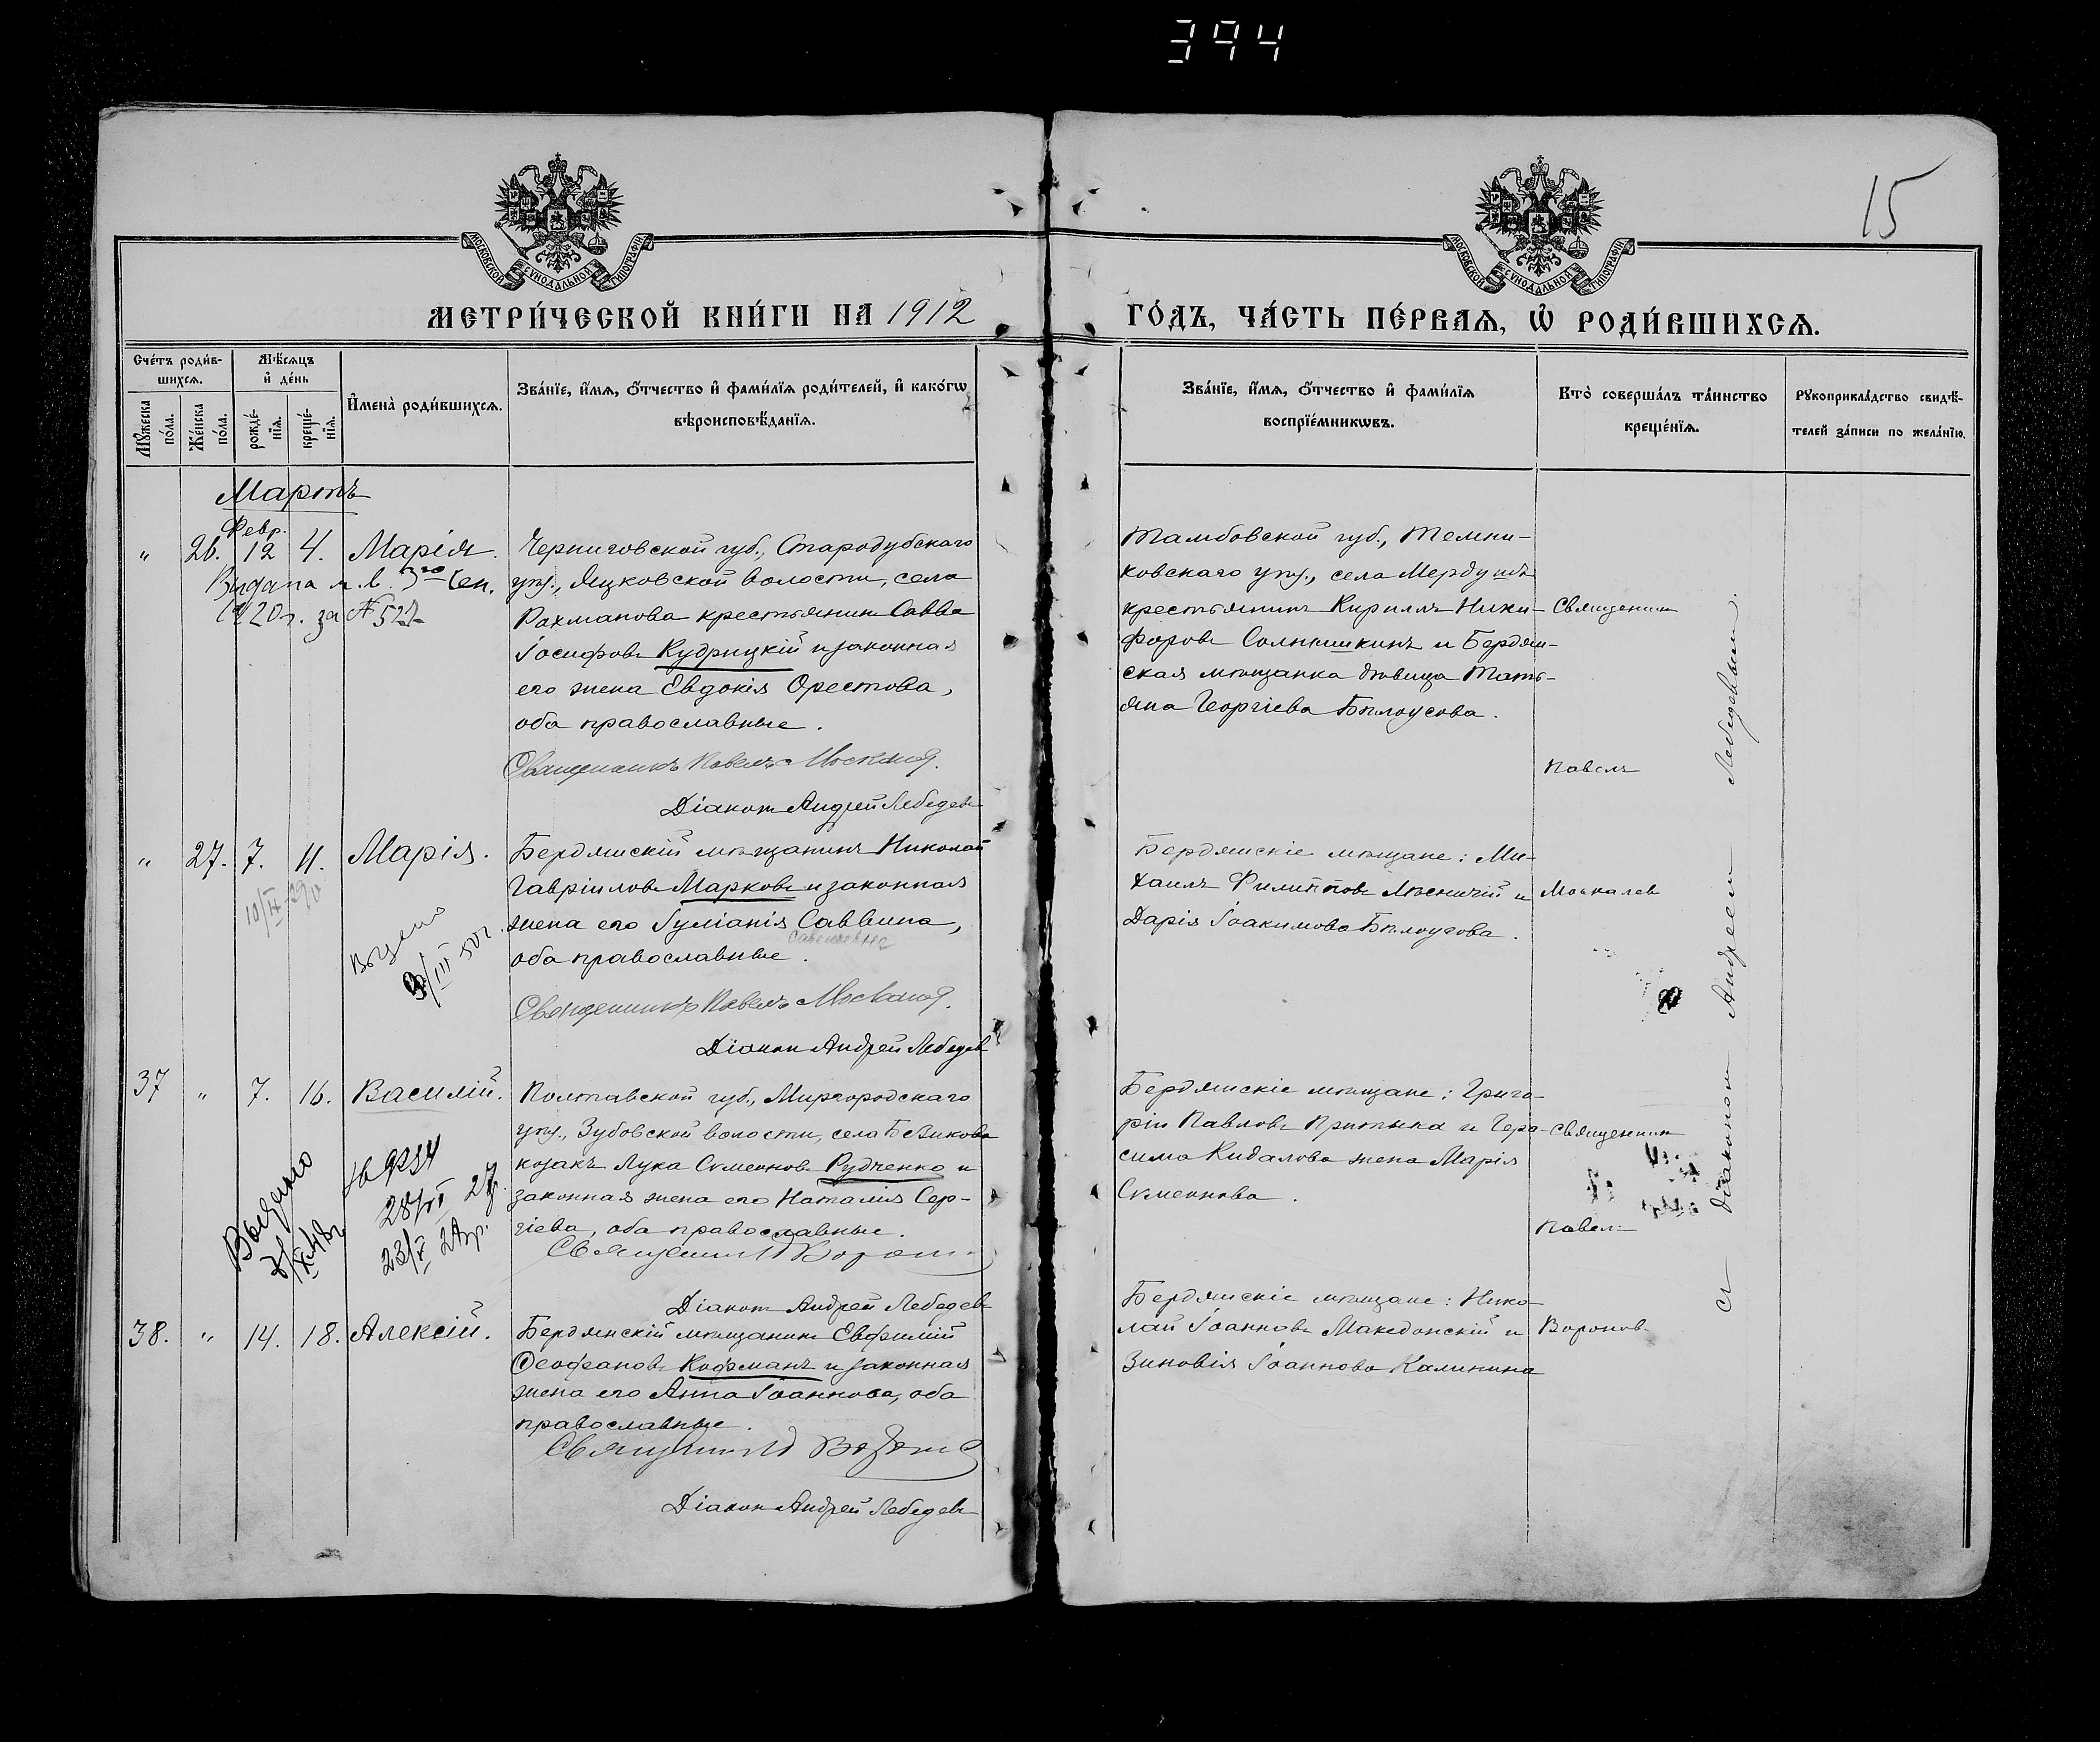 394
15
МОСКОВСКОЙ СУНОДАЛЬНОЙ ТИПОГРАФІИ
МОСКОВСКОЙ СУНОДАЛЬНОЙ ТИПОГРАФІИ
МЕТРИ́ЧЕСКОЙ КНИ́ГИ НА 1912
ГО́ДЪ, ЧА́СТЬ ПЕ́РВАѦ, Ѡ РОДИ́ВШИХСѦ.
Сче́тъ роди́в-
шихсѧ.
Мꙋ́жеска по́ла.
Же́нска по́ла.
Мѣ́сѧцъ
и҆ де́нь
рожде́-
нїѧ.
креще́-
нїѧ.
И҆мена̀ роди́вшихсѧ.
Зва́нїе, и҆́мѧ, ѻ҆́тчество и҆ фами́лїѧ роди́телей, и҆ како́гѡ
вѣроисповѣ́данїѧ.
Зва́нїе, и҆́мѧ, ѻ҆́тчество и҆ фами́лїѧ
воспрїе́мникѡвъ.
Кто̀ соверша́лъ та́инство
креще́нїѧ.
Рꙋкоприкла́дство свидѣ́-
телей за́писи по жела́нїю.
Мартъ
Февр.
" 26. 12 4. Марія.
Выдана м. в. 3го Сен.
1920 г. за № 527
Черниговской губ., Стародубскаго
уѣз., Яцковской волости, села
Рахманова крестьянинъ Савва
Іосифовъ Кудрицкій и законная
его жена Евдокія Орестова,
оба православные.
Священникъ Павелъ Москалев.
Діаконъ Андрей Лебедевъ
Тамбовской губ., Темни-
ковскаго уѣз., села Мердушъ
крестьянинъ Кириллъ Ники-
форовъ Солнышкинъ и Бердян-
ская мѣщанка дѣвица Тать-
яна Георгіева Бѣлоусова.
Священник
Павелъ
" 27. 7. 11. Марія.
Выдано
Бердянскій мѣщанинъ Николай
Гавріиловъ Марковъ и законная
жена его Іуліанія Саввина,
оба православные.
Священникъ Павелъ Москалев.
Діаконъ Андрей Лебедев
Бердянскіе мѣщане: Ми-
хаилъ Филипповъ Лѣсничій и
Дарія Іоакимова Бѣлоусова.
Москалев
37 " 7. 16. Василій.
Выдано
28/VI 27 г.
23/V 28 г.
Полтавской губ., Миргородскаго
уѣз., Зубовской волости, села
козакъ Лука Симеоновъ Рудченко и
законная жена его Наталія Сер-
гіева, оба православные.
Священник П Воронов
Діаконъ Андрей Лебедевъ
Бердянскіе мѣщане: Григо-
рій Павловъ Притыка и Гера-
сима Кидалова жена Марія
Симеонова.
Священник
Павел
38. " 14. 18. Алексій.
Бердянскій мѣщанинъ Евфимій
Ѳеофановъ Кофманъ и законная
жена его Анна Іоаннова, оба
православные.
Священник П Воронов
Діаконъ Андрей Лебедевъ
Бердянскіе мѣщане: Нико-
лай Іоанновъ Македонскій и
Зиновія Іоаннова Калинина
Воронов
съ діаконом Андреем Лебедевым.